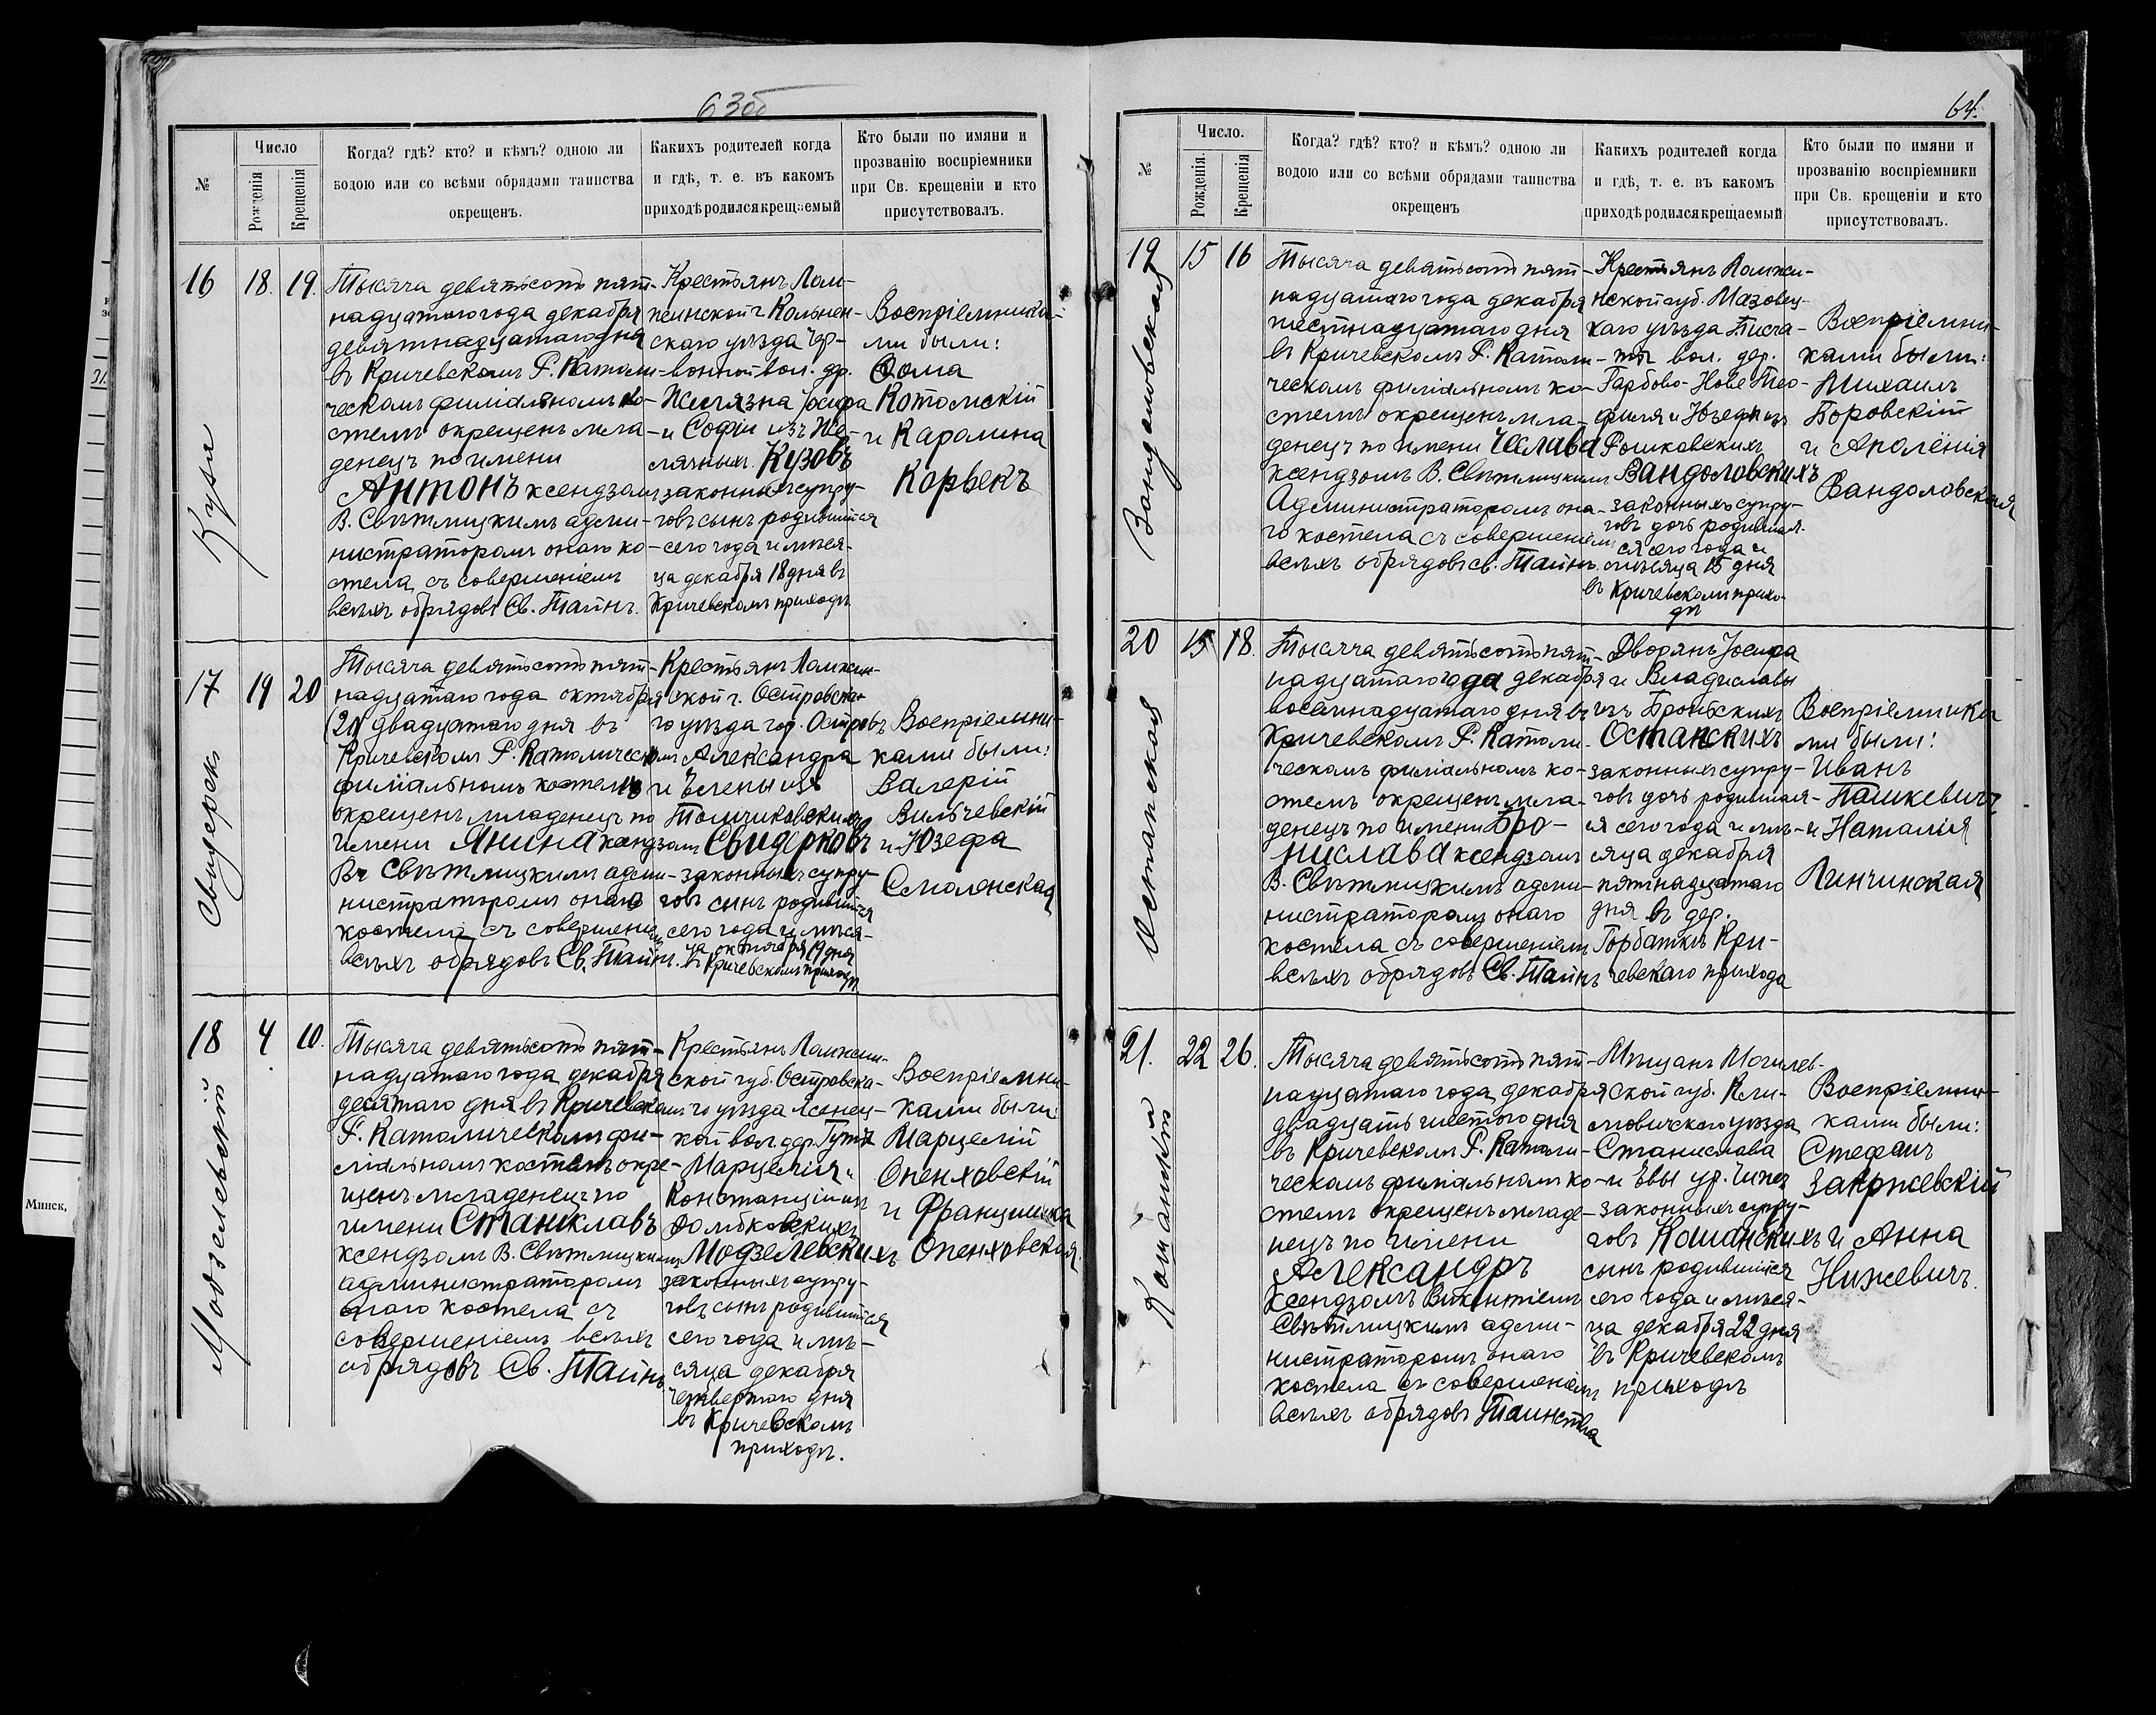 63об
№
Число
Рожденія
Крещенія
Когда? гдѣ? кто? и кѣмъ? одною ли
водою или со всѣми обрядами таинства
окрещенъ.
Какихъ родителей когда
и гдѣ, т. е. въ какомъ
приходѣ родился крещаемый
Кто были по имяни и
прозванію воспріемники
при Св. крещеніи и кто
присутствовалъ.
16
18.
19.
Тысяча девятьсотъ пят-
надцатаго года декабря
девятнадцатаго дня
въ Кричевскомъ Р. Католи-
ческомъ филіальномъ ко-
стелѣ окрещенъ мла-
денецъ по имени
Антонъ ксендзомъ
В. Свѣтлицкимъ адми-
нистраторомъ онаго ко-
стела съ совершеніемъ
всѣхъ обрядовъ Св. Таинъ.
Крестьянъ Лом-
жинской г. Кольнен-
скаго уѣзда Чер-
вонной вол. др.
Жилязна Іосифа
и Софіи изъ
Кузовъ
законныхъ супру-
говъ сынъ родившійся
сего года и мѣся-
ца декабря 18 дня въ
Кричевскомъ приходѣ
Воспріемника-
ми были:
Ѳома
Котомскій
и Каролина
Корвекъ
17
19
20
Свидерск
Тысяча девятьсотъ пят-
надцатаго года октября
(20) двадцатаго дня въ
Кричевскомъ Р. Католическомъ
филіальномъ костелѣ
окрещенъ младенецъ по
имени Янина ксендзомъ
Вч Свѣтлицкимъ адми-
нистраторомъ онаго
костела съ совершеніемъ
всѣхъ обрядовъ Св. Таинъ.
Крестьянъ Ломжин-
ской г. Островска-
го уѣзда гор. Островъ
Александра
и Елены изъ
Томчиковскихъ
Свидерковъ
законныхъ супру-
говъ сынъ родившійся
сего года и мѣся-
ца октября 19 дня
въ Кричевскомъ приходѣ
Воспріемни-
ками были:
Валерій
Вильчевскій
и Юзефа
Смолянская
18
4
10.
Модзелевскій
Тысяча девятьсотъ пят-
надцатаго года декабря
десятаго дня въ Кричевскомъ
Р. Католическомъ фи-
ліальномъ костелѣ окре-
щенъ младенецъ по
имени Станиславъ
ксендзомъ В. Свѣтлицкимъ
администраторомъ
онаго костела съ
совершеніемъ всѣхъ
обрядовъ Св. Таинъ
Крестьянъ Ломжин-
ской губ. Островска-
го уѣзда Ясенец-
кой вол. дер.
Марцелія и
Констанціи изъ
Домбковскихъ
Модзелевскихъ
законныхъ супру-
говъ сынъ родившійся
сего года и мѣ-
сяца декабря
четвертаго дня
въ Кричевскомъ
приходѣ.
Воспріемни-
ками были:
Марцелій
Опенховскій
и Францишка
Опенховская.
64.
№
Число.
Рожденія.
Крещенія
Когда? гдѣ? кто? и кѣмъ? одною ли
водою или со всѣми обрядами таинства
окрещенъ
Какихъ родителей когда
и гдѣ, т. е. въ какомъ
приходѣ родился крещаемый
Кто были по имяни и
прозванію воспріемники
при Св. крещеніи и кто
присутствовалъ.
19
15
16
Вондоловская
Тысяча девятьсотъ пят-
надцатаго года декабря
шестнадцатаго дня
въ Кричевскомъ Р. Католи-
ческомъ филіальномъ ко-
стелѣ окрещенъ мла-
денецъ по имени Чеслава
ксендзомъ В. Свѣтлицкимъ
Администраторомъ она-
го костела съ совершеніемъ
всѣхъ обрядовъ св. Таинъ.
Крестьянъ Ломжи-
нской губ. Мазовец-
каго уѣзда
вол. дер.
Гарбово-Нове Тео-
филя и Юзефы изъ
Рошковскихъ
Вандоловскихъ
законныхъ супру-
говъ дочь родивша-
яся сего года и
мѣсяца 15 дня
въ Кричевскомъ прихо-
дѣ
Воспріемни-
ками были:
Михаилъ
Боровскій
и Аполёнія
Вандоловская
20
15
18.
Останская
Тысяча девятьсотъ пят-
надцатаго года декабря
восемнадцатаго дня въ
Кричевскомъ Р. Католи-
ческомъ филіальномъ ко-
стелѣ окрещенъ мла-
денецъ по имени Бро-
нислава ксендзомъ
В. Свѣтлицкимъ адми-
нистраторомъ онаго
костела съ совершеніемъ
всѣхъ обрядовъ Св. Таинъ
Дворянъ Іосифа
и Владиславы
изъ Бронскихъ
Останскихъ
законныхъ супру-
говъ дочь родившая-
ся сего года и мѣ-
сяца декабря
пятнадцатаго
дня въ дер.
Горбаткѣ Кри-
чевскаго прихода
Воспріемника
ми были:
Иванъ
Пашкевичъ
и Наталія
Пинчинская
21.
22
26.
Кошанскій
Тысяча девятьсотъ пят-
надцатаго года декабря
двадцать шестого дня
въ Кричевскомъ Р. Католи-
ческомъ филіальномъ ко-
стелѣ окрещенъ младе-
нецъ по имени
Александръ
Ксендзомъ Викентіемъ
Свѣтлицкимъ адми-
нистраторомъ онаго
костела съ совершеніемъ
всѣхъ обрядовъ Таинства
Мѣщанъ Могилев-
ской губ. Кли-
мовичскаго уѣзда
Станислава
и Евы ур.
законныхъ супру-
говъ Кошанскихъ
сынъ родившійся
сего года и мѣся-
ца декабря 22 дня
въ Кричевскомъ
приходѣ
Воспріемни-
ками были:
Стефанъ
Закржевскій
и Анна
Нижевичъ.
Минск,